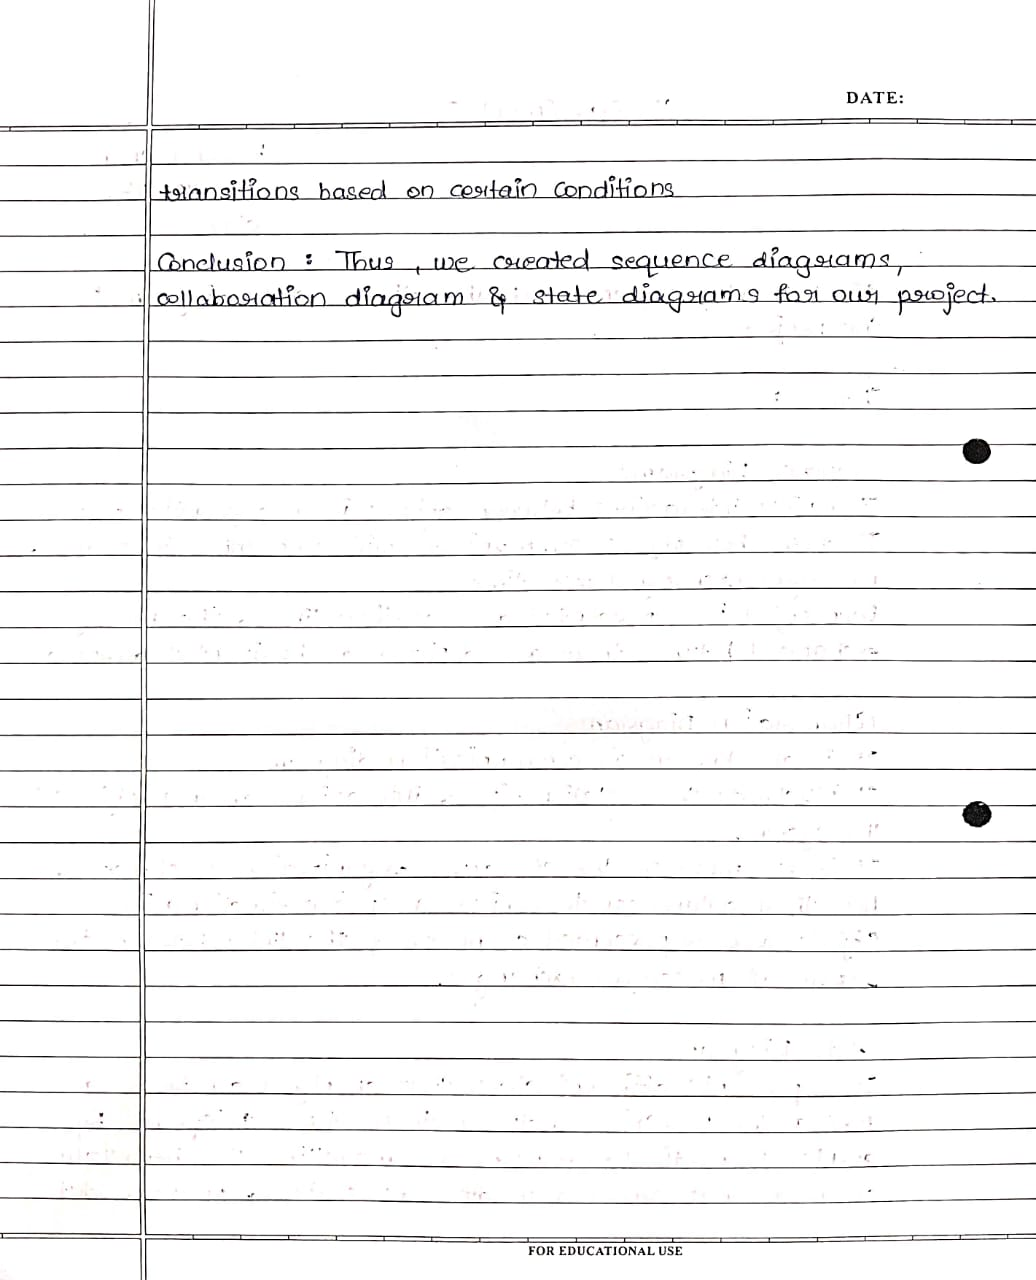 DATE:
transitions based on certain conditions
Conclusion : Thus , we created sequence diagrams,
collaboration diagram & state diagrams for our project.
FOR EDUCATIONAL USE